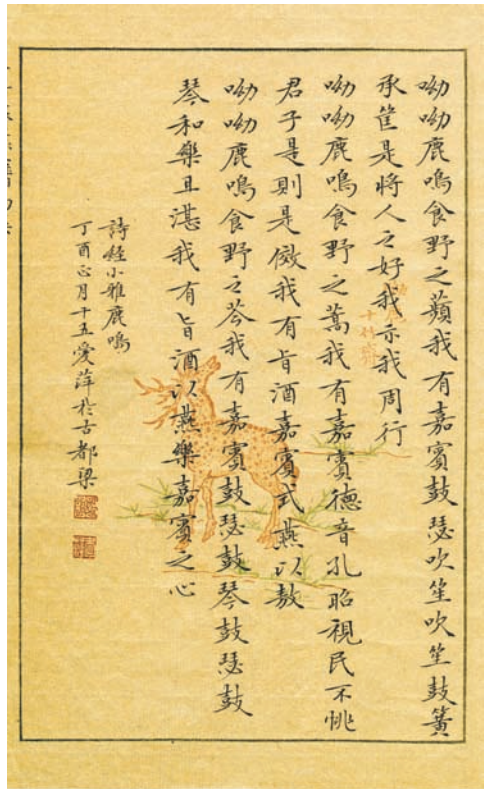 呦呦鹿鳴食野之蘋我有嘉賓鼓瑟吹笙吹笙鼓簧
承筐是將人之好我示我周行
呦呦鹿鳴食野之蒿我有嘉賓德音孔昭視民不恌
君子是則是傚我有旨酒嘉賓式燕以敖
呦呦鹿鳴食野之芩我有嘉賓鼓瑟鼓琴鼓瑟鼓
琴和樂且湛我有旨酒以燕樂嘉賓之心
詩經小雅鹿鳴
丁酉正月十五愛萍於古都梁
十竹齋